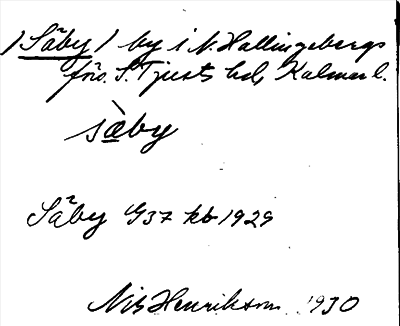 /Säby/ by i N. Hallingebergs
förs. S. Tjusts hd, Kalmar l.
sàby
Säby G37 kb 1929
Nils Henrikson 1930